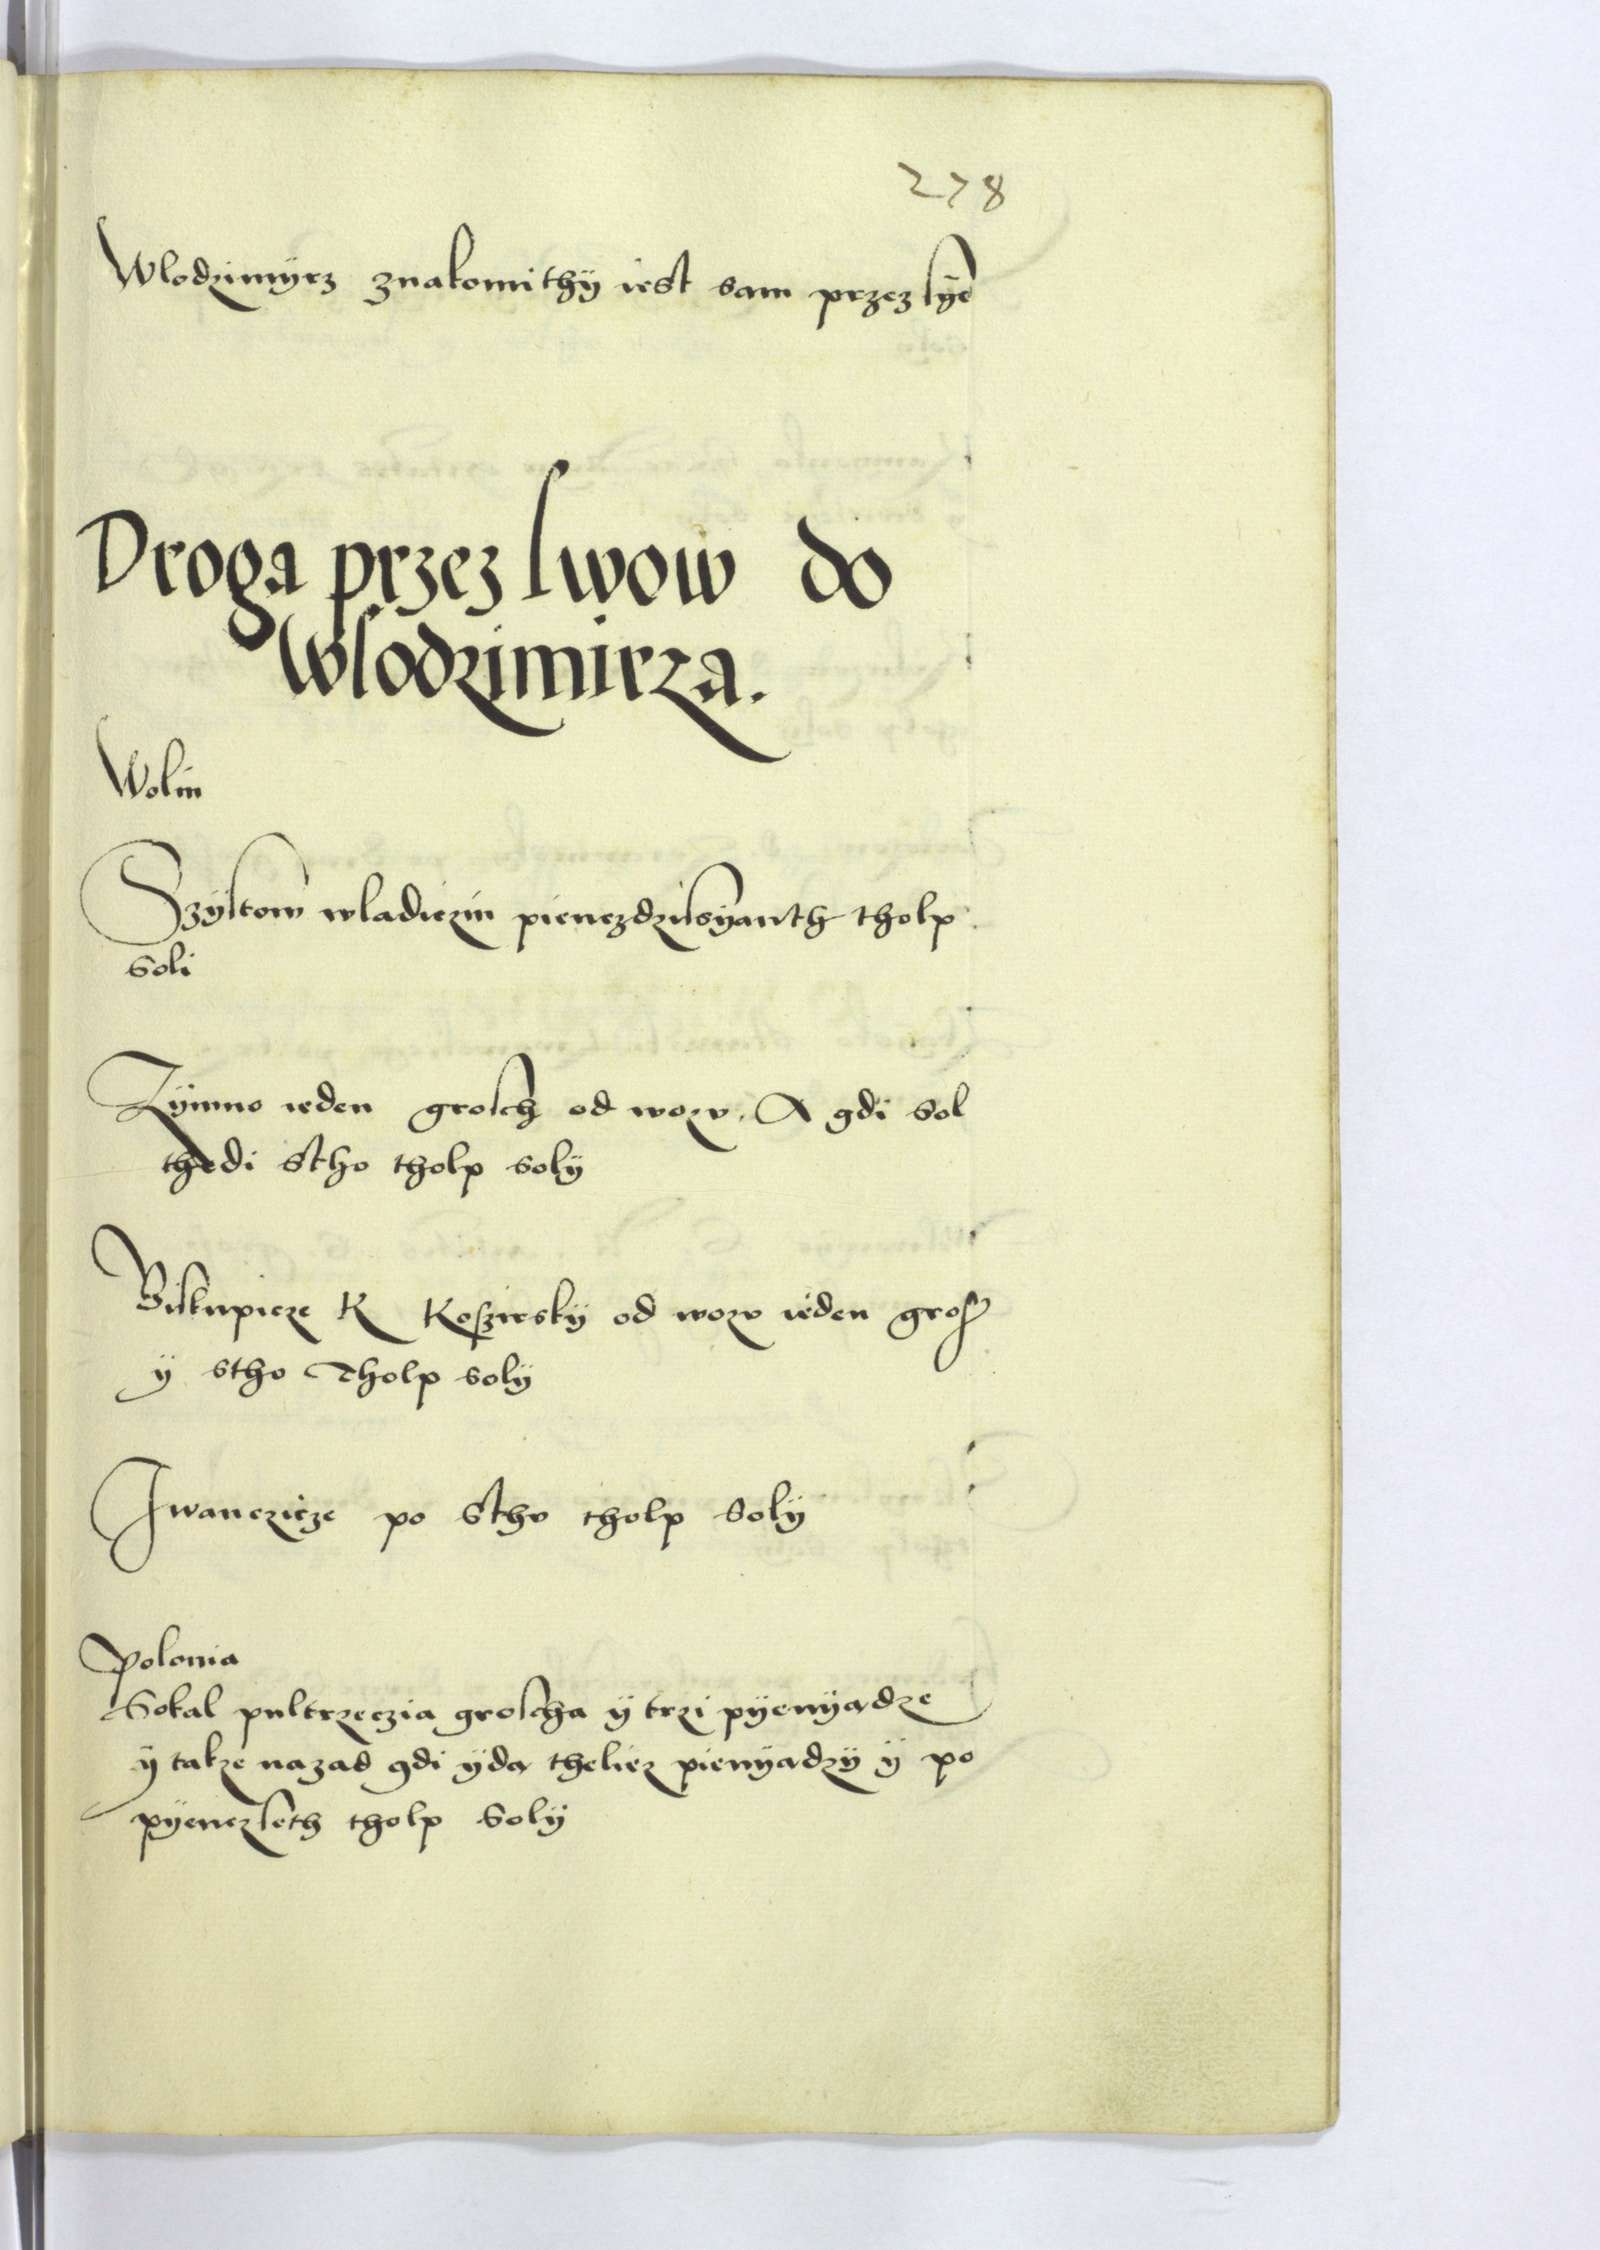 278
Wlodzimÿrz znakomithÿ iest sam przez sÿe
Droga przez lwow do
Wlodzimirza.
Wolin
Szÿstow wladiczin pienczdziesÿanth tholp
soli
Zÿmno ieden grosch od wozv. A gdi sol
thedi stho tholp solÿ
Biskupicze K Koszirskÿ od wozv ieden gros
ÿ stho Tholp solÿ
Jwanczicze po stho tholp solÿ
Polonia
Sokal pultrzeczia groscha ÿ trzi pÿenÿądze
ÿ takze nazad gdi ÿdą theliez pienÿądzÿ ÿ po
pÿenczseth tholp solÿ